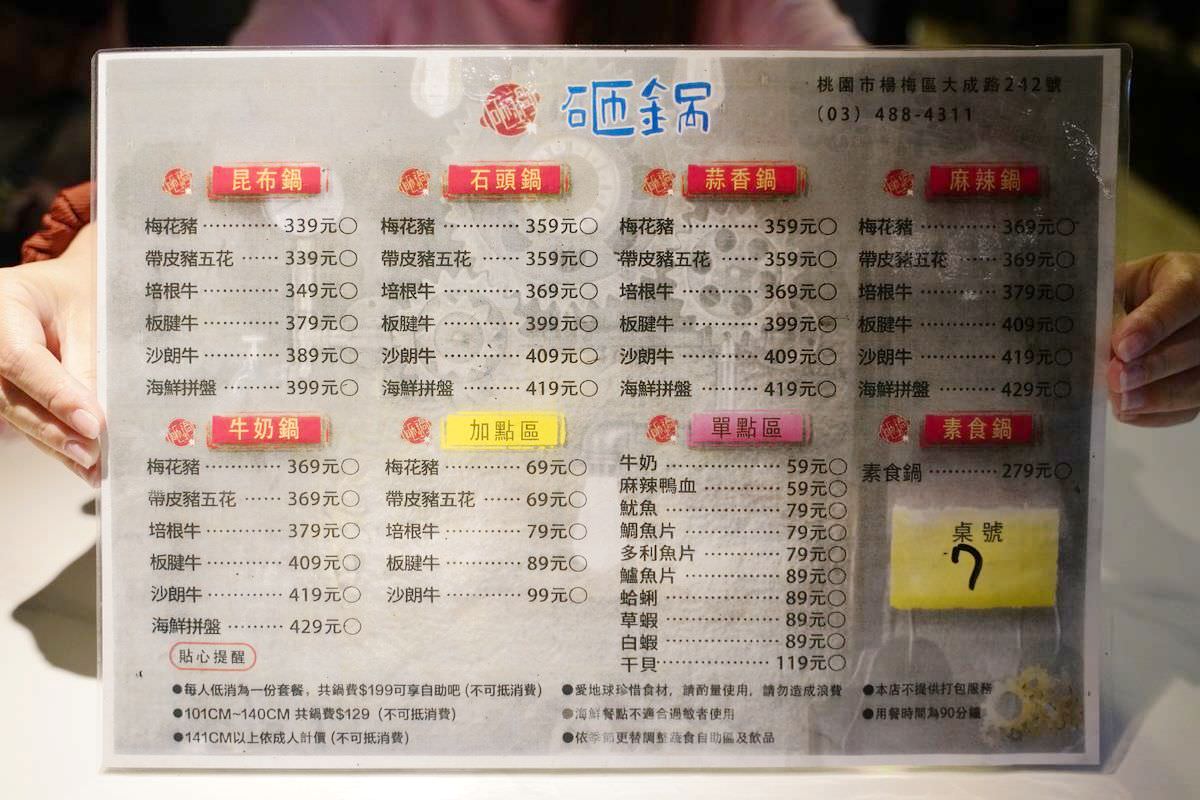 砸鍋
桃園市楊梅區大成路242號
(03) 488-4311
昆布鍋
梅花豬 ………… 339元〇
帶皮豬五花 …… 339元〇
培根牛 ………… 349元〇
板腱牛 ………… 379元〇
沙朗牛 ………… 389元〇
海鮮拼盤 ……… 399元〇
石頭鍋
梅花豬 ………… 359元〇
帶皮豬五花 …… 359元〇
培根牛 ………… 369元〇
板腱牛 ………… 399元〇
沙朗牛 ………… 409元〇
海鮮拼盤 ……… 419元〇
蒜香鍋
梅花豬 ………… 359元〇
帶皮豬五花 …… 359元〇
培根牛 ………… 369元〇
板腱牛 ………… 399元〇
沙朗牛 ………… 409元〇
海鮮拼盤 ……… 419元〇
麻辣鍋
梅花豬 ………… 369元〇
帶皮豬五花 …… 369元〇
培根牛 ………… 379元〇
板腱牛 ………… 409元〇
沙朗牛 ………… 419元〇
海鮮拼盤 ……… 429元〇
牛奶鍋
梅花豬 ………… 369元〇
帶皮豬五花 …… 369元〇
培根牛 ………… 379元〇
板腱牛 ………… 409元〇
沙朗牛 ………… 419元〇
海鮮拼盤 ……… 429元〇
加點區
梅花豬 ………… 69元〇
帶皮豬五花 …… 69元〇
培根牛 ………… 79元〇
板腱牛 ………… 89元〇
沙朗牛 ………… 99元〇
單點區
牛奶 …………… 59元〇
麻辣鴨血 ……… 59元〇
魷魚 …………… 79元〇
鯛魚片 ………… 79元〇
多利魚片 ……… 79元〇
鱸魚片 ………… 89元〇
蛤蜊 …………… 89元〇
草蝦 …………… 89元〇
白蝦 …………… 89元〇
干貝 …………… 119元〇
素食鍋
素食鍋 ………… 279元〇
桌號
7
貼心提醒
●每人低消為一份套餐，共鍋費$199可享自助吧 (不可抵消費)
●101CM~140CM 共鍋費$129 (不可抵消費)
●141CM以上依成人計價 (不可抵消費)
●愛地球珍惜食材，請酌量使用，請勿造成浪費
●海鮮餐點不適合過敏者使用
●依季節更替調整蔬食自助區及飲品
●本店不提供打包服務
●用餐時間為90分鐘